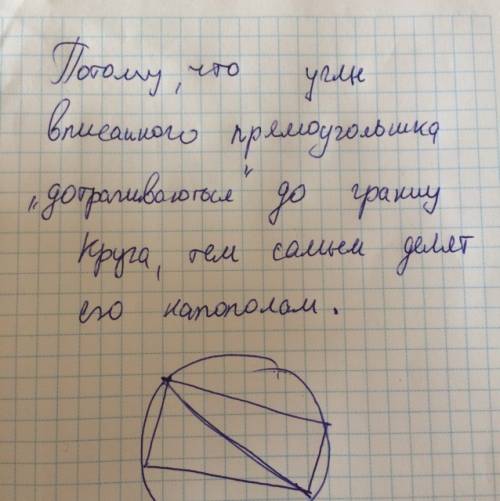 Потому, что углы
вписанного прямоугольника
„дотрагиваються" до границ
круга, тем самым делят
его напополам.